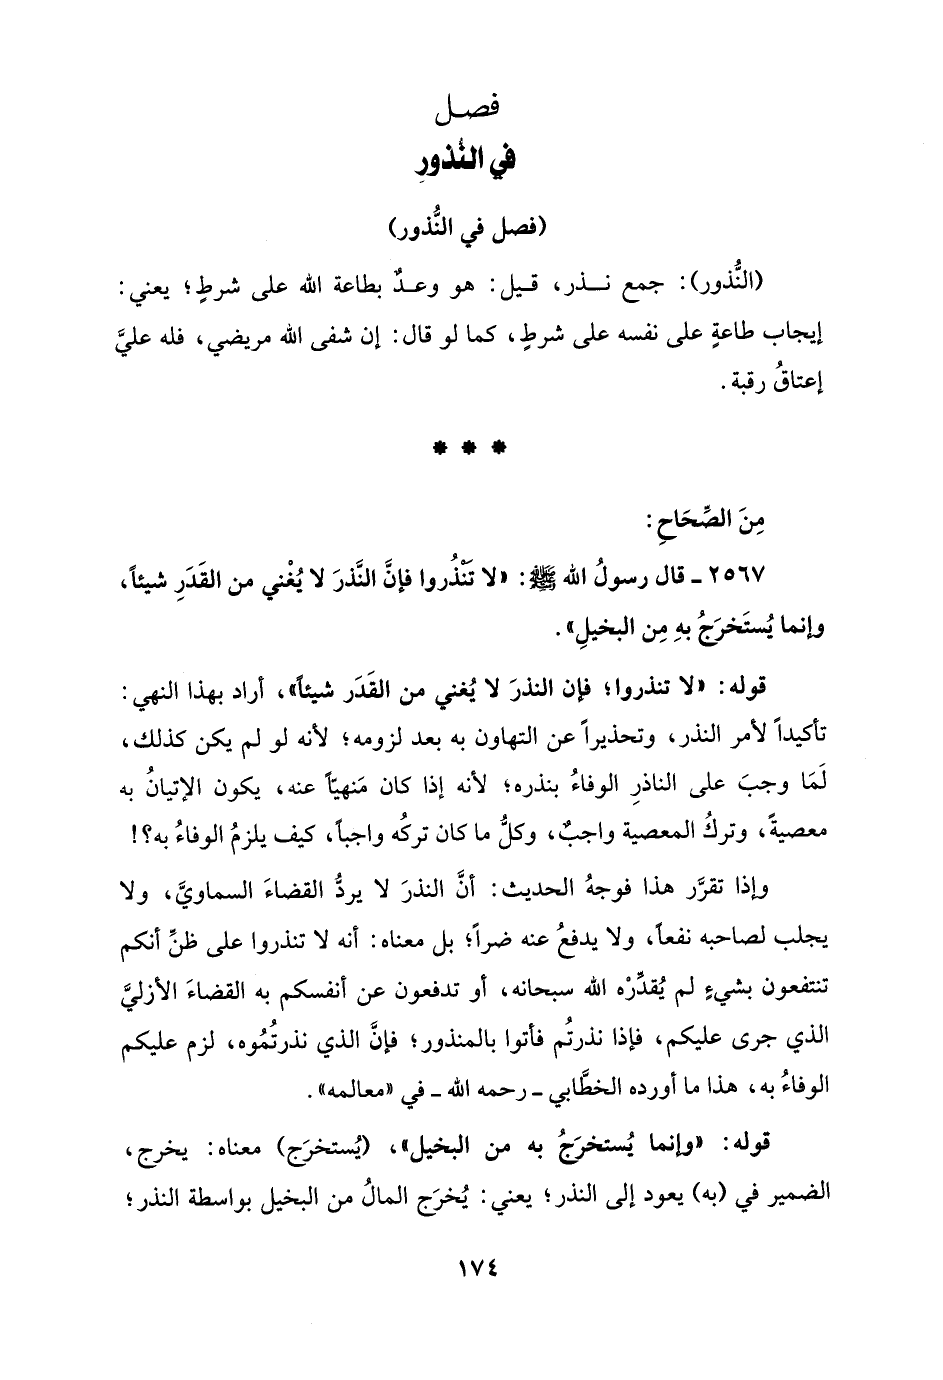 فصـل
في النُّذورِ
(فصل في النُّذور)
(النُّذور): جمع نــذر، قـيل: هو وعـدٌ بطاعة الله على شرطٍ؛ يعني:
إيجاب طاعةٍ على نفسه على شرطٍ، كما لو قال: إن شفى الله مريضي، فله عليَّ
إعتاقُ رقبة.
* * *
مِنَ الصِّحَاحِ:
٢٥٦٧ ـ قال رسولُ الله ﷺ: «لا تَنْذُروا فإنَّ النَّذرَ لا يُغْني من القَدَرِ شيئاً،
وإنما يُستَخرَجُ بهِ مِن البخيلِ».
قوله: «لا تنذروا؛ فإن النذرَ لا يُغني من القَدَر شيئاً»، أراد بهذا النهي:
تأكيداً لأمر النذر، وتحذيراً عن التهاون به بعد لزومه؛ لأنه لو لم يكن كذلك،
لَمَا وجبَ على الناذرِ الوفاءُ بنذره؛ لأنه إذا كان مَنهيّاً عنه، يكون الإتيانُ به
معصيةً، وتركُ المعصية واجبٌ، وكلُّ ما كان تركُه واجباً، كيف يلزمُ الوفاءُ به؟!
وإذا تقرَّر هذا فوجهُ الحديث: أنَّ النذرَ لا يردُّ القضاءَ السماويَّ، ولا
يجلب لصاحبه نفعاً، ولا يدفعُ عنه ضراً؛ بل معناه: أنه لا تنذروا على ظنِّ أنكم
تنتفعون بشيءٍ لم يُقدِّرْه الله سبحانه، أو تدفعون عن أنفسكم به القضاءَ الأزليَّ
الذي جرى عليكم، فإذا نذرتُم فأتوا بالمنذور؛ فإنَّ الذي نذرتُمُوه، لزم عليكم
الوفاءُ به، هذا ما أورده الخطَّابي ـ رحمه الله ـ في «معالمه».
قوله: «وإنما يُستخرَجُ به من البخيل»، (يُستخرَج) معناه: يخرج،
الضمير في (به) يعود إلى النذر؛ يعني: يُخرَج المالُ من البخيل بواسطة النذر؛
١٧٤